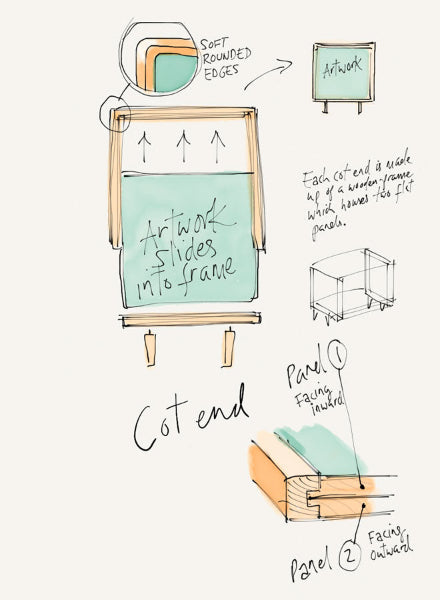 SOFT
ROUNDED
EDGES
Artwork
Artwork
slides
into frame
Each cot end is made
up of a wooden frame
which houses two flat
panels.
Cot end
Panel 1
Facing
inward
Panel 2
Facing
outward